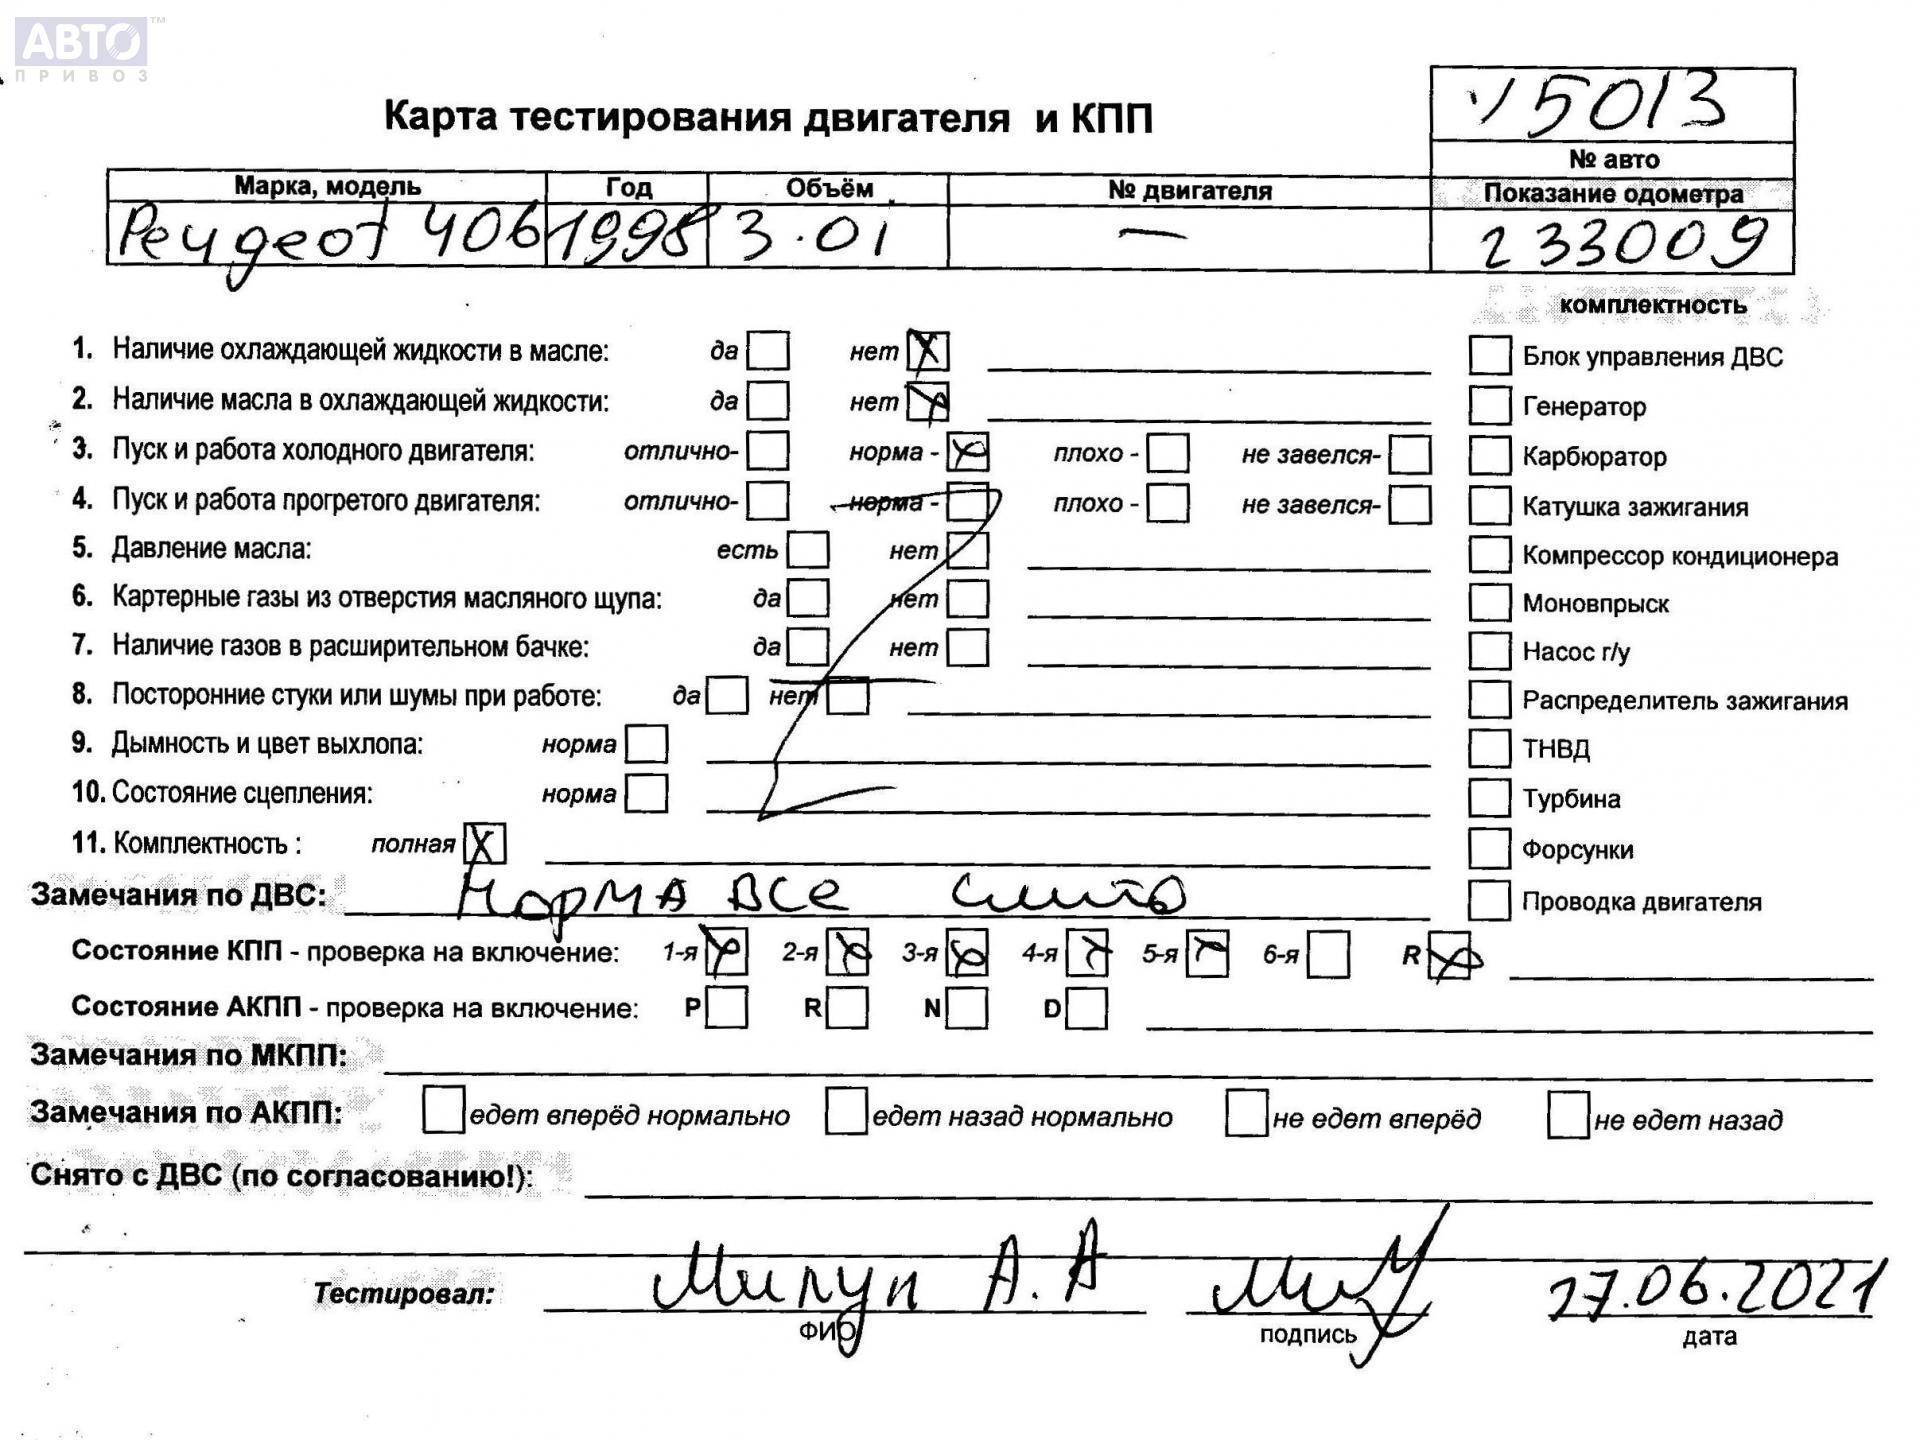 АВТО™
ПРИВОЗ
Карта тестирования двигателя и КПП
√5013
№ авто
Марка, модель Год Объём № двигателя Показание одометра
Peugeot 406 1998 3.0i — 233009
комплектность
1. Наличие охлаждающей жидкости в масле: да нет X Блок управления ДВС
2. Наличие масла в охлаждающей жидкости: да нет X Генератор
3. Пуск и работа холодного двигателя: отлично- норма - X плохо - не завелся- Карбюратор
4. Пуск и работа прогретого двигателя: отлично- норма - плохо - не завелся- Катушка зажигания
5. Давление масла: есть нет Компрессор кондиционера
6. Картерные газы из отверстия масляного щупа: да нет Моновпрыск
7. Наличие газов в расширительном бачке: да нет Насос г/у
8. Посторонние стуки или шумы при работе: да нет Распределитель зажигания
9. Дымность и цвет выхлопа: норма ТНВД
10. Состояние сцепления: норма Турбина
11. Комплектность : полная X Форсунки
Замечания по ДВС: Норма все слито Проводка двигателя
Состояние КПП - проверка на включение: 1-я X 2-я X 3-я X 4-я X 5-я X 6-я R X
Состояние АКПП - проверка на включение: P R N D
Замечания по МКПП:
Замечания по АКПП: едет вперёд нормально едет назад нормально не едет вперёд не едет назад
Снято с ДВС (по согласованию!):
Тестировал: А.А 27.06.2021
ФИО подпись дата